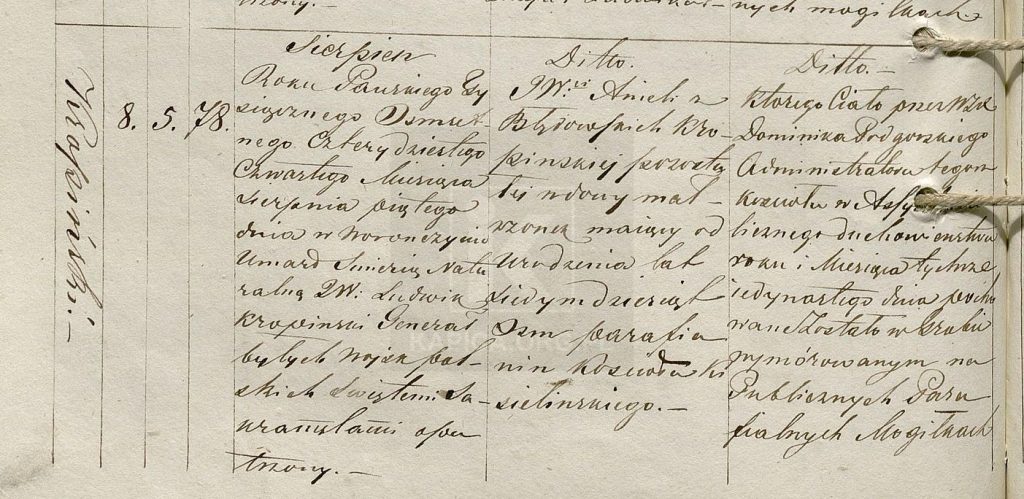 nych mogiłkach
Kropiński. –
8. 5. 78.
Sierpien
Roku Pańskiego Ty
siącznego Osmset-
nego Czterydziestego
Czwartego Miesiąca
Sierpnia piątego
dnia w Woronczynie
Umarł Smiercią Natu
ralną JW: Ludwik
Kropinski Generał
byłych Wojsk pol-
skich Swiętemi Sa-
kramętami opa
trzony. –
Ditto.
JW:ei Anieli z
Błędowskich Kro-
pinskiej pozosta
łej wdowy mał-
rzonek maiący od
Urodzenia lat
siedymdziesiąt
Osm parafia
nin Koscioła Ki
sielinskiego. –
Ditto. –
ktorego Ciało przez WJX
Dominika Podgorskiego
Administratora tegoż
Kościoła w
licznego duchowienstwa
roku i Miesiąca tychże
iedynastego dnia pocho
wane Zostało w Grobie
wymórowanym na
Publicznych Para
fialnych Mogiłkach
KAPICA.ORG